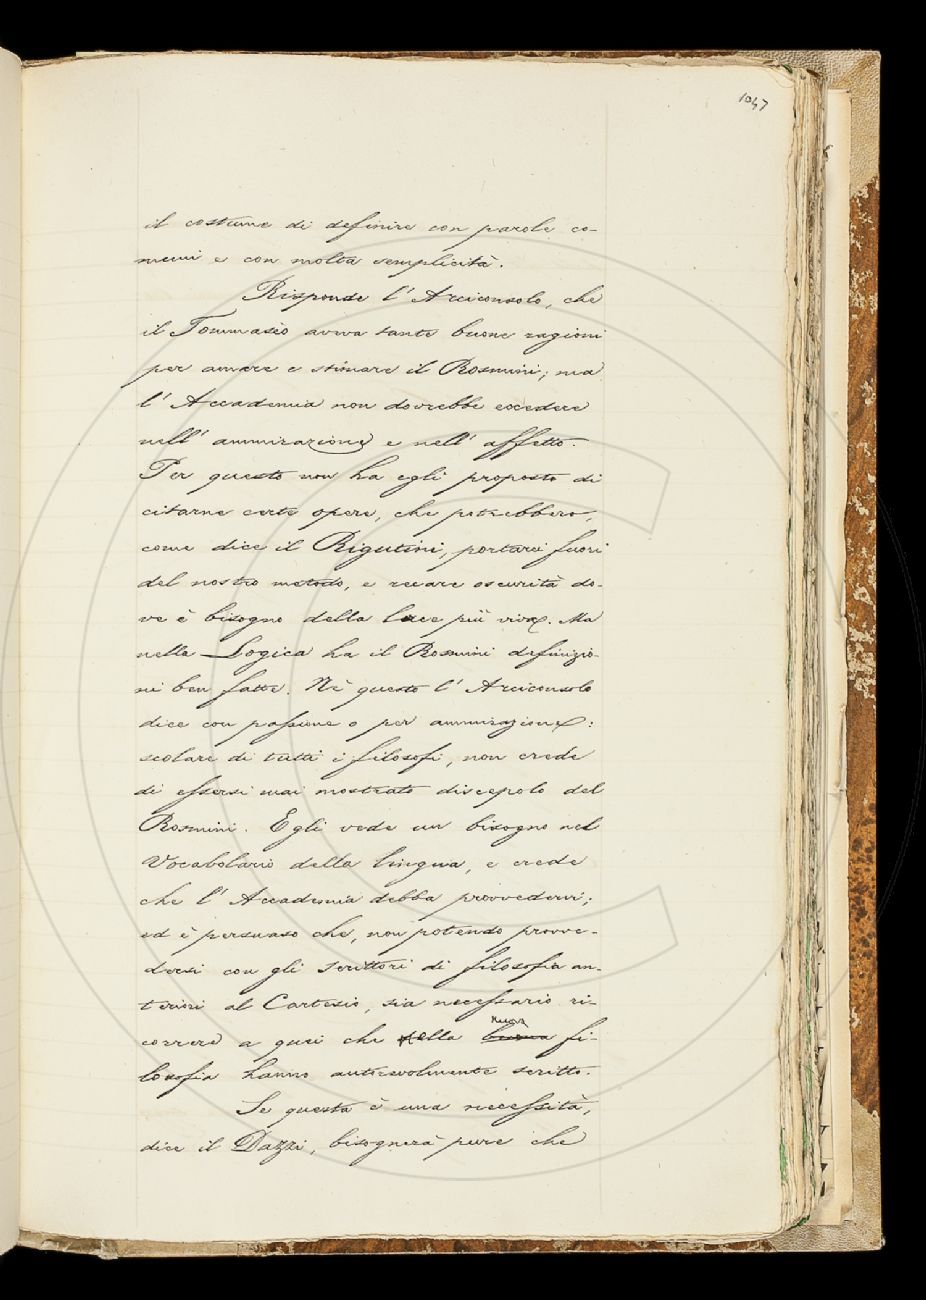 1047
il costume di definire con parole co-
muni e con molta semplicità.
Risponde l'Arciconsolo, che
il Tommasèo aveva tante buone ragioni
per amare e stimare il Rosmini; ma
l'Accademia non dovrebbe eccedere
nell'ammirazione e nell'affetto.
Per questo non ha egli proposto di
citarne certe opere, che potrebbero,
come dice il Rigutini, portarci fuori
del nostro metodo, e recare oscurità do-
ve è bisogno della luce più viva. Ma
nella Logica ha il Rosmini definizio-
ni ben fatte. Nè questo l'Arciconsolo
dice con passione o per ammirazione:
scolare di tutti i filosofi, non crede
di essersi mai mostrato discepolo del
Rosmini. Egli vede un bisogno nel
Vocabolario della lingua, e crede
che l'Accademia debba provvedervi;
ed è persuaso che, non potendo provve-
dersi con gli scrittori di filosofia an-
teriori al Cartesio, sia necessario ri-
correre a quei che della buona nuova fi-
losofia hanno autorevolmente scritto.
Se questa è una necessità,
dice il Dazzi, bisognerà pure che